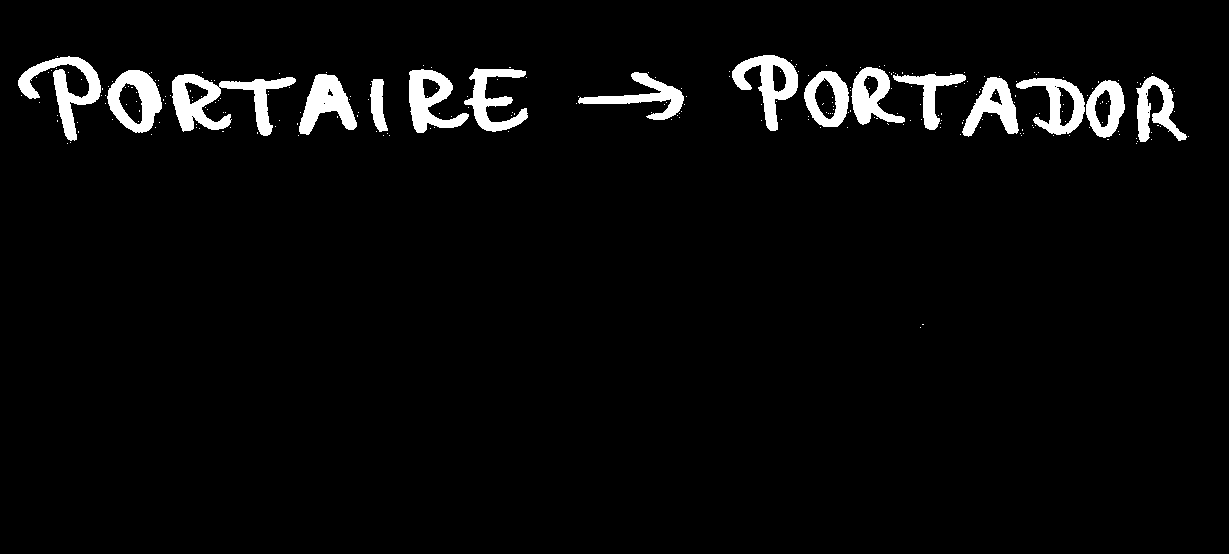 PORTAIRE → PORTADOR